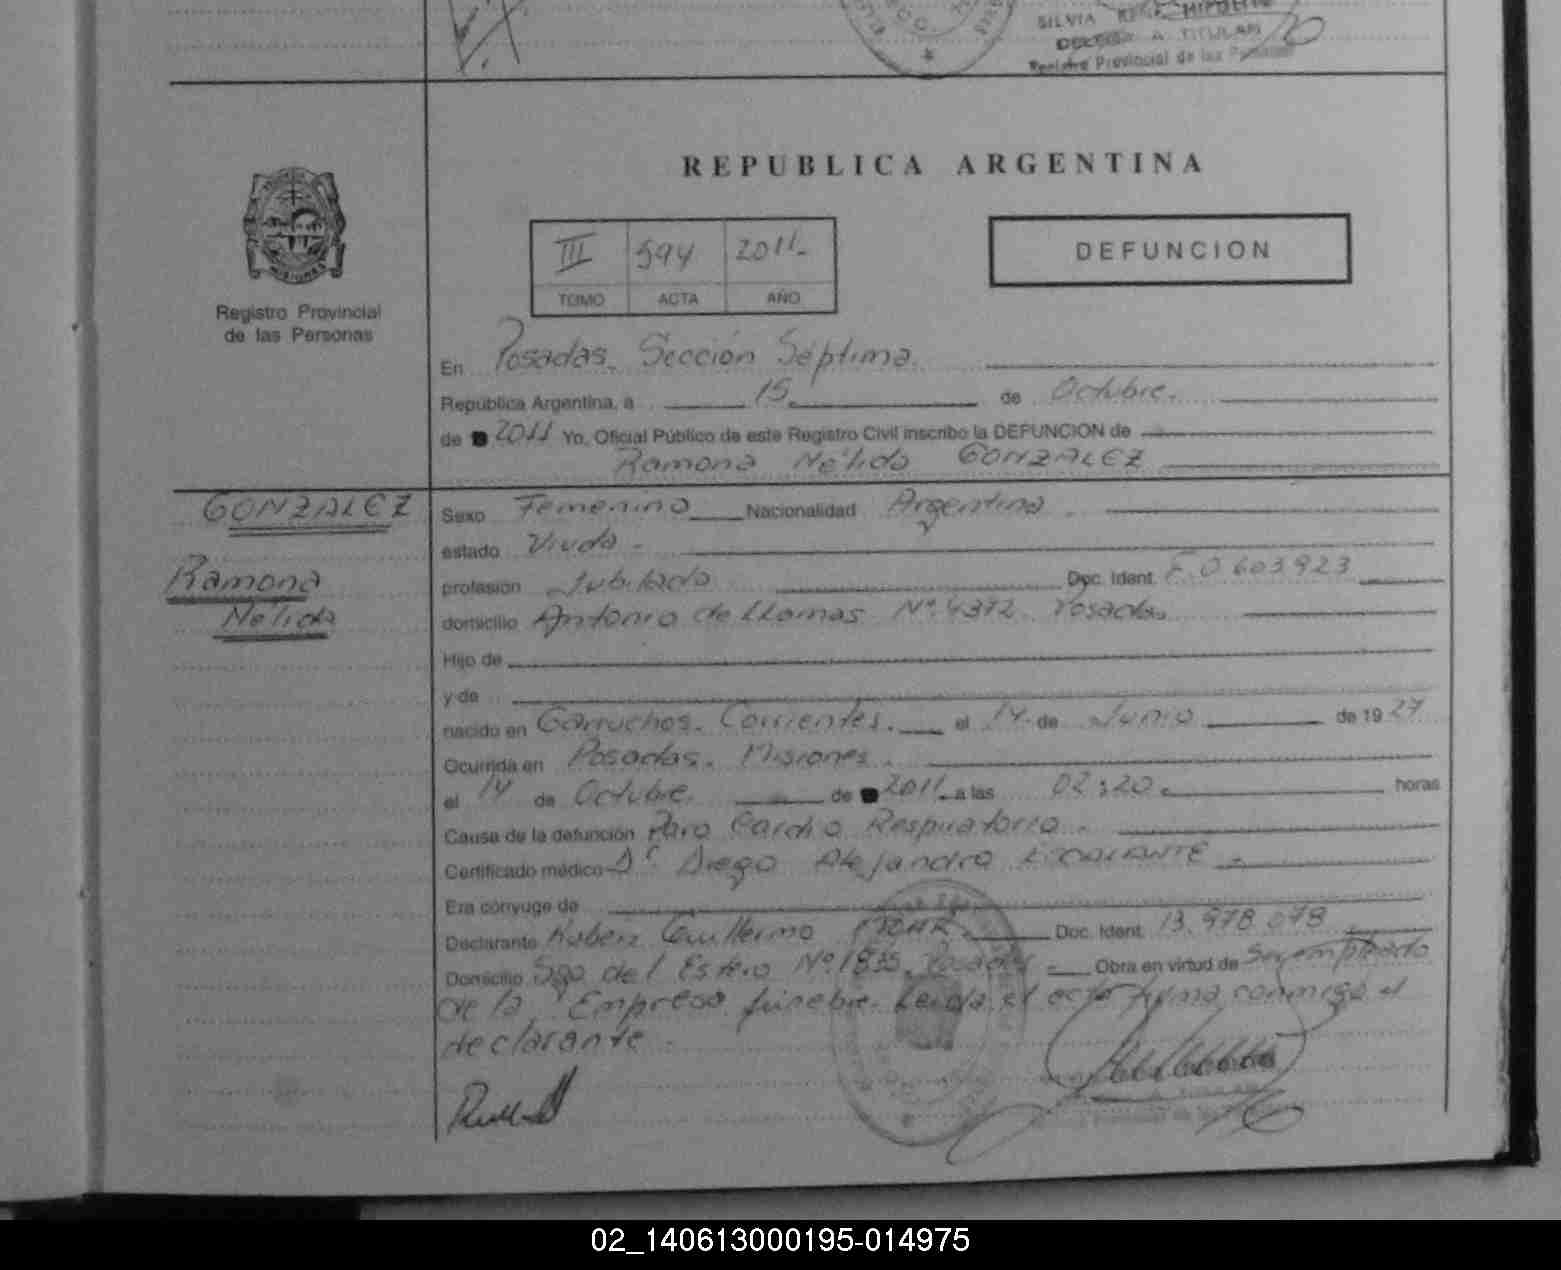 SILVIA
TITULAR
Registro Provincial de las Personas
REPUBLICA ARGENTINA
III 594 2011.-
TOMO ACTA AÑO
DEFUNCION
MISIONES
Registro Provincial
de las Personas
En Posadas. Sección Séptima.
República Argentina, a 15 de Octubre.
de 2011 Yo, Oficial Público de este Registro Civil inscribo la DEFUNCION de
Ramona Nélida GONZALEZ
GONZALEZ
Ramona
Nélida
Sexo Femenino Nacionalidad Argentina.
estado Viuda.-
profesión Jubilada Doc. Ident. F.0.603.923
domicilio Antonio de LLamas Nº 4372 Posadas.
Hijo de
y de
nacido en Garruchos. Corrientes. el 14 de Junio de 1927
Ocurrida en Posadas. Misiones.
el 14 de Octubre. de 2011 a las 02:20. horas
Causa de la defunción Paro Cardio Respiratorio.
Certificado médico Dr. Diego Alejandro
Era cónyuge de
Declarante Ruben Guillermo Doc. Ident. 13.978.078
Domicilio Sgo del Estero Nº 1835. Posadas.- Obra en virtud de Ser empleado
de la Empresa fúnebre. Leida el acta firma conmigo el
declarante.
02_140613000195-014975